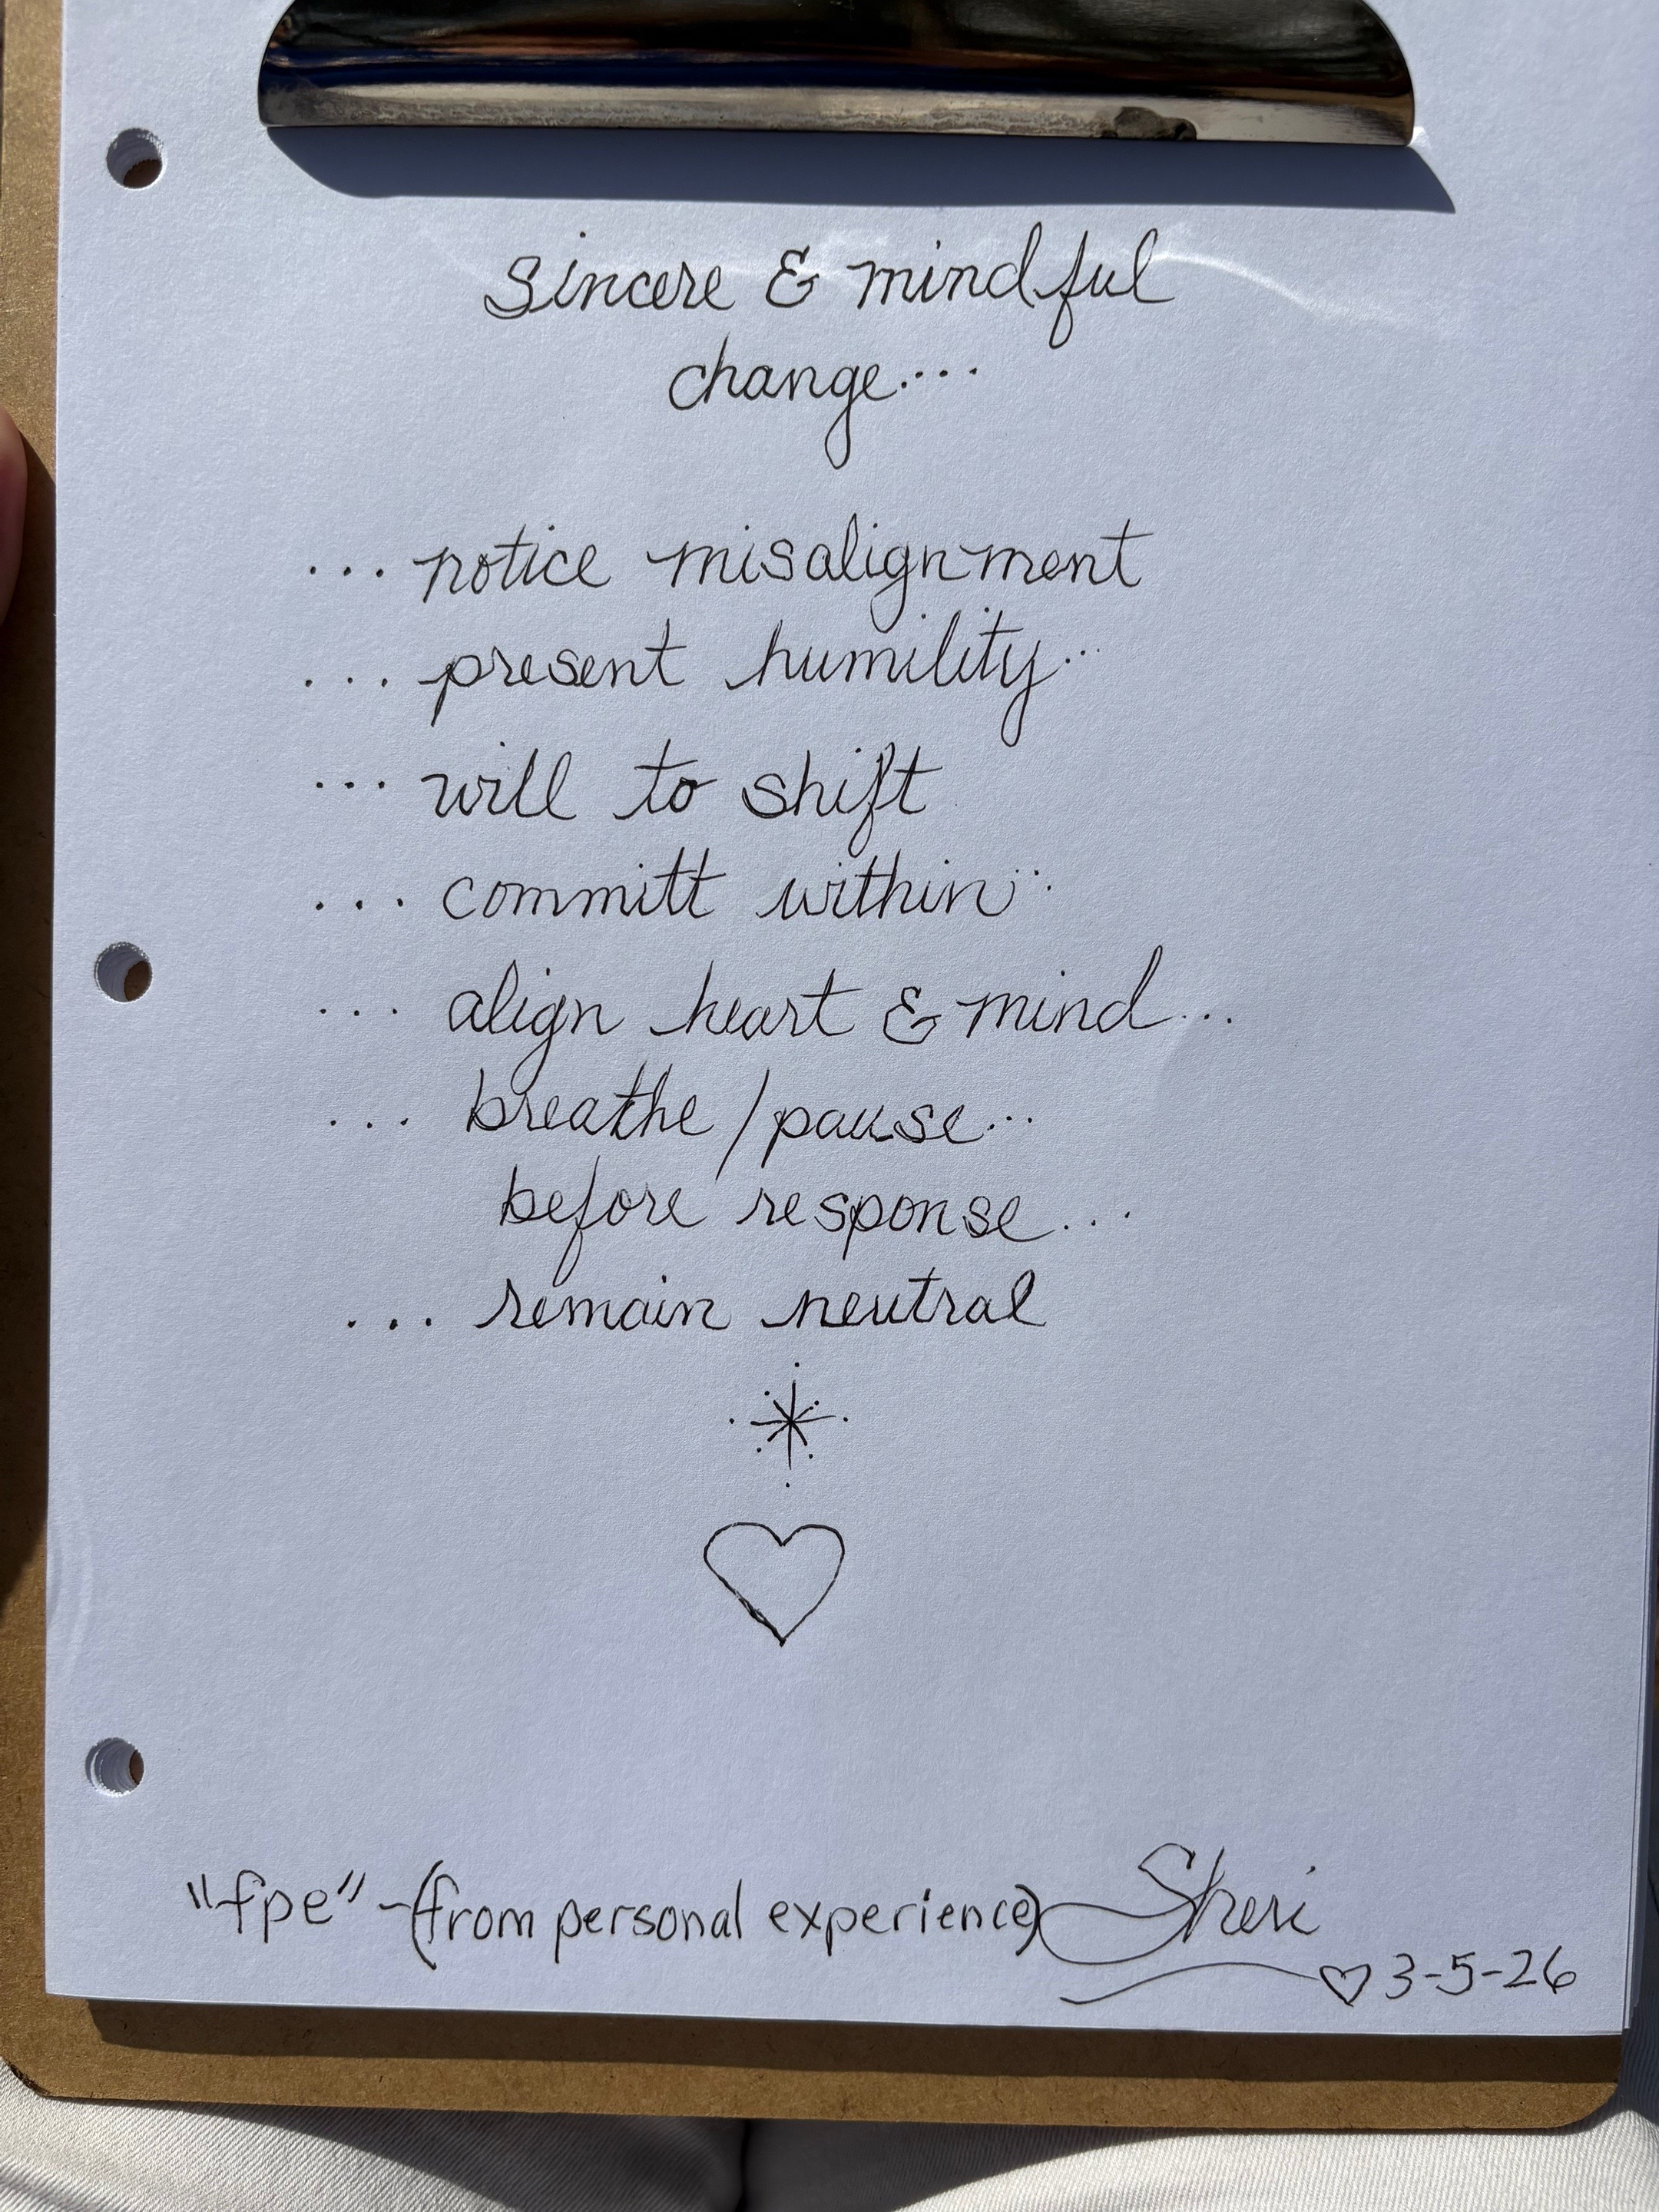 sincere & mindful
change....
... notice misalignment
... present humility...
... will to shift
... committt within...
... align heart & mind...
... breathe/pause...
before response...
... remain neutral
"fpe" - (from personal experience) Sheri
♡ 3-5-26